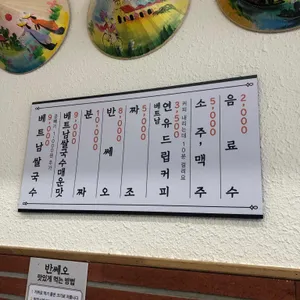 음료수
2,000
소주,맥주
5,000
커피 내리는데 10분 걸려요
베트남
연유드립커피
3,500
짜조
5,000
반쎄오
8,000
분짜
10,000
베트남쌀국수매운맛
9,000
베트남쌀국수
9,000
반쎄오
맛있게 먹는 방법